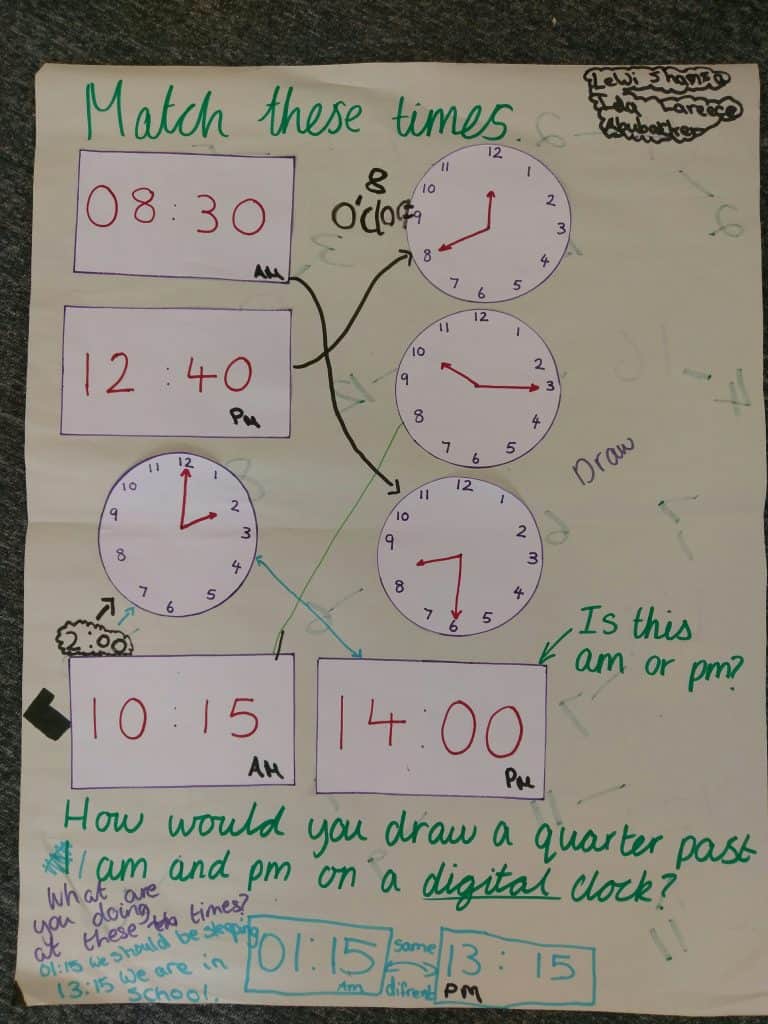 Match these times.
Lewi Shamsa
08:30
AM
8
O'clock
12 1 2 3 4 5 6 7 8 9 10 11
12:40
PM
12 1 2 3 4 5 6 7 8 9 10 11
12 1 2 3 4 5 6 7 8 9 10 11
12 1 2 3 4 5 6 7 8 9 10 11
Draw
2:00
Is this
am or pm?
10:15
AM
14:00
PM
How would you draw a quarter past
1 am and pm on a digital clock?
What are
you doing
at these times?
01:15 we should be sleeping
13:15 we are in
school.
01:15
Am
same
difrent
13:15
PM